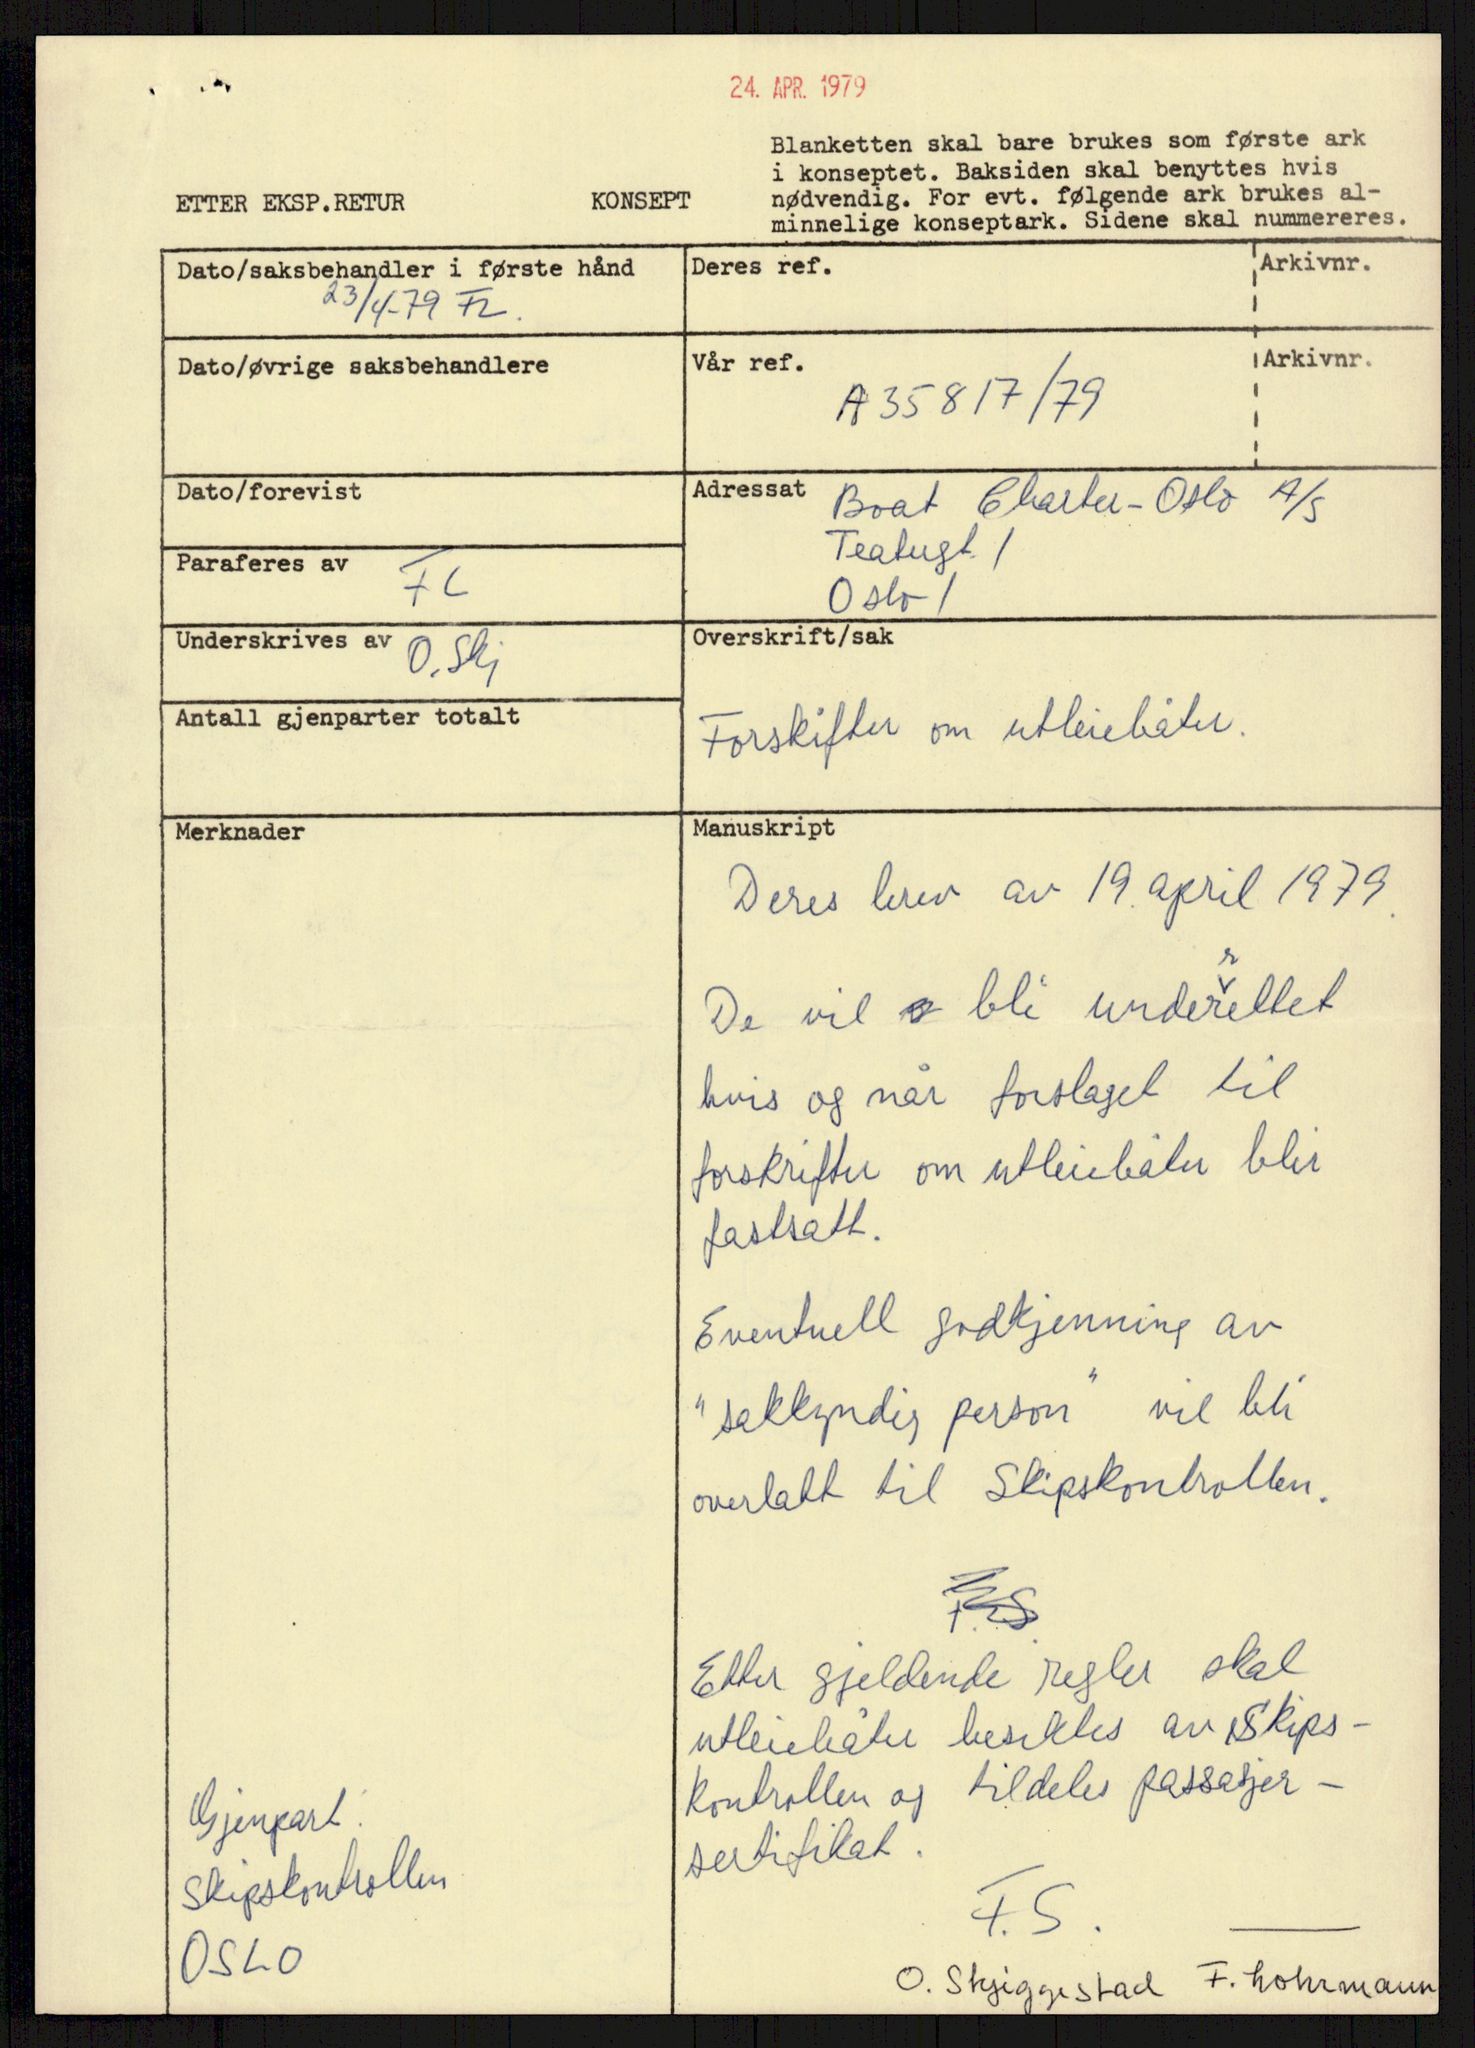 24. APR. 1979
Blanketten skal bare brukes som første ark
i konseptet. Baksiden skal benyttes hvis
nødvendig. For evt. følgende ark brukes al-
minnelige konseptark. Sidene skal nummereres.
ETTER EKSP.RETUR
KONSEPT
Dato/saksbehandler i første hånd
23/4-79 FL.
Deres ref.
Arkivnr.
Dato/øvrige saksbehandlere
Vår ref.
Arkivnr.
A 35817/79
Dato/forevist
Adressat
Boat Charter-Oslo A/S
Teatergt. 1
Oslo 1
Paraferes av
FL
Underskrives av
O. Skj
Overskrift/sak
Forskifter om utleiebåter.
Antall gjenparter totalt
Merknader
Manuskript
Deres brev av 19. april 1979.
De vil bli underrettet
hvis og når forslaget til
forskrifter om utleiebåter blir
fastsatt.
Eventuell godkjenning av
"sakkyndig person" vil bli
overlatt til Skipskontrollen.
Etter gjeldende regler skal
utleiebåter besiktes av Skips-
kontrollen og tildeles passasjer-
sertifikat.
F.S.
O. Skjiggestad F. Lohrmann
Gjenpart:
Skipskontrollen
OSLO